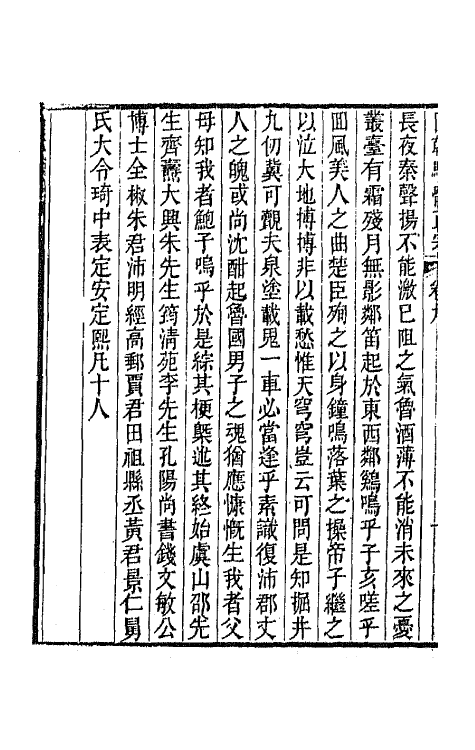 卷九
長夜秦聲揚不能激已阻之氣魯酒薄不能消未來之憂
叢臺有霜殘月無影鄰笛起於東西鄰鷄鳴乎子亥嗟乎
囬風美人之曲楚臣殉之以身鐘鳴落葉之操帝子繼之
以泣大地摶摶非以載愁惟天穹穹豈云可問是知掘井
九仞冀可覿夫泉塗載鬼一車必當逢乎素識復沛郡丈
人之魄或尚沈酣起魯國男子之魂猶應慷慨生我者父
母知我者鮑子嗚乎於是綜其梗槩迣其終始虞山邵先
生齊燾大興朱先生筠清苑李先生孔陽尚書錢文敏公
博士全椒朱君沛明經高郵賈君田祖縣丞黃君景仁舅
氏大令琦中表定安定熙凡十人